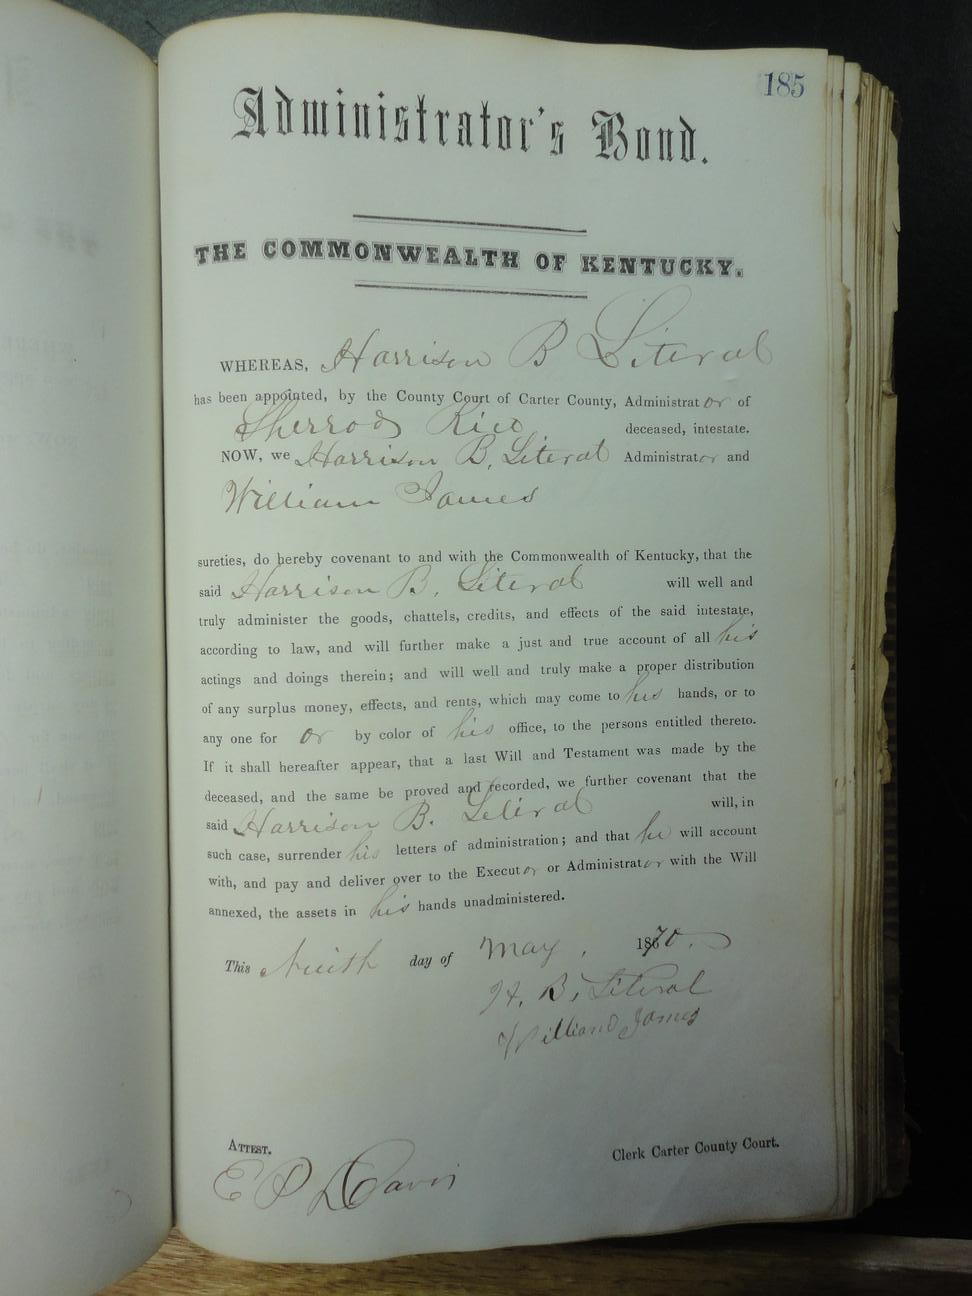 185
Administrator's Bond.
THE COMMONWEALTH OF KENTUCKY.
WHEREAS, Harrison B Literal
has been appointed, by the County Court of Carter County, Administrator of
Sherrod Rice deceased, intestate.
NOW, we Harrison B. Literal Administrator and
William James
sureties, do hereby covenant to and with the Commonwealth of Kentucky, that the
said Harrison B. Literal will well and
truly administer the goods, chattels, credits, and effects of the said intestate,
according to law, and will further make a just and true account of all his
actings and doings therein; and will well and truly make a proper distribution
of any surplus money, effects, and rents, which may come to his hands, or to
any one for or by color of his office, to the persons entitled thereto.
If it shall hereafter appear, that a last Will and Testament was made by the
deceased, and the same be proved and recorded, we further covenant that the
said Harrison B. Literal will, in
such case, surrender his letters of administration; and that he will account
with, and pay and deliver over to the Executor or Administrator with the Will
annexed, the assets in his hands unadministered.
This Ninth day of May, 1870.
H. B. Literal
William James
ATTEST.
Clerk Carter County Court.
E P Davis